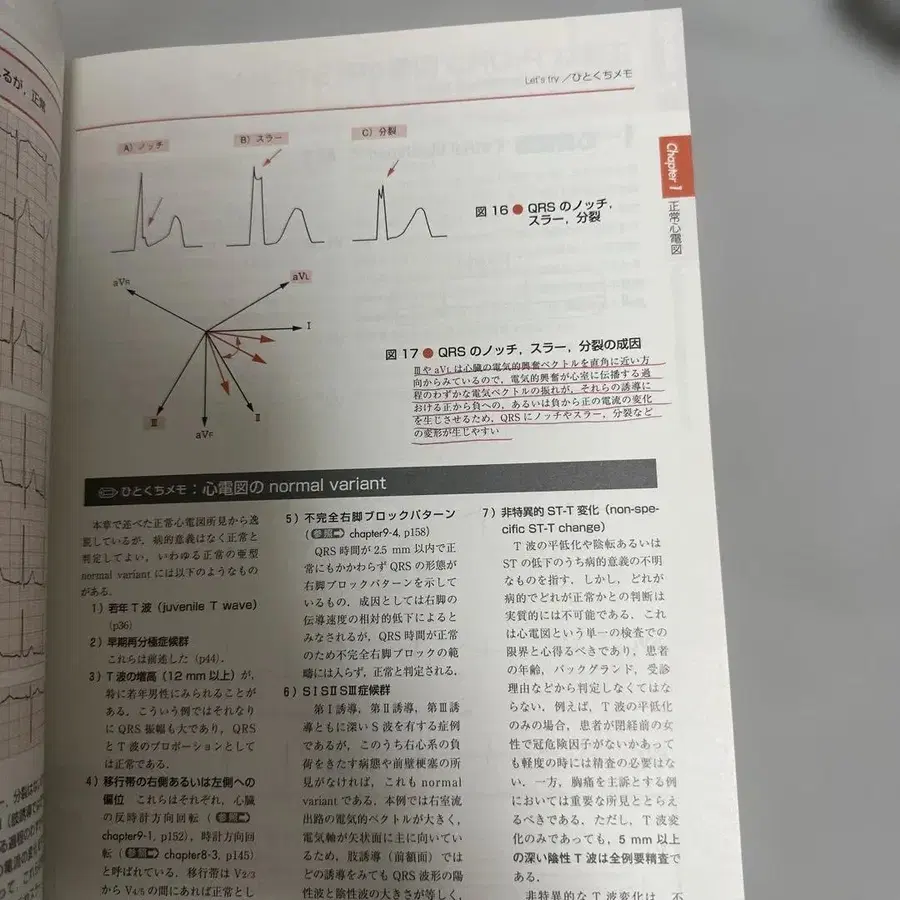 るが，正常
Let's try／ひとくちメモ
Chapter 1
正常心電図
A）ノッチ
B）スラー
C）分裂
図16●QRSのノッチ，
スラー，分裂
aVR
aVL
I
III
aVF
II
図17●QRSのノッチ，スラー，分裂の成因
ⅢやaVLは心臓の電気的興奮ベクトルを直角に近い方
向からみているので，電気的興奮が心室に伝播する過
程のわずかな電気ベクトルの振れが，それらの誘導に
おける正から負への，あるいは負から正の電流の変化
を生じさせるため，QRSにノッチやスラー，分裂など
の変形が生じやすい
ひとくちメモ：心電図の normal variant
本章で述べた正常心電図所見から逸
脱しているが，病的意義はなく正常と
判定してよい，いわゆる正常の亜型
normal variant には以下のようなもの
がある．
1）若年T波（juvenile T wave）
（p36）
2）早期再分極症候群
これらは前述した（p44）．
3）T波の増高（12 mm以上）が，
特に若年男性にみられることが
ある．こういう例ではそれなり
にQRS振幅も大であり，QRS
とT波のプロポーションとして
は正常である．
4）移行帯の右側あるいは左側への
偏位　これらはそれぞれ，心臓
の反時計方向回転（参照
chapter9-1，p152），時計方向回
転（参照 chapter8-3，p145）
と呼ばれている．移行帯はV2/3
からV4/5の間にあれば正常とし
5）不完全右脚ブロックパターン
（参照 chapter9-4，p158）
QRS時間が2.5 mm以内で正
常にもかかわらずQRSの形態が
右脚ブロックパターンを示して
いるもの．成因としては右脚の
伝導速度の相対的低下によると
みなされるが，QRS時間が正常
のため不完全右脚ブロックの範
疇には入らず，正常と判定される．
6）SⅠSⅡSⅢ症候群
第Ⅰ誘導，第Ⅱ誘導，第Ⅲ誘
導ともに深いS波を有する症例
であるが，このうち右心系の負
荷をきたす病態や前壁梗塞の所
見がなければ，これもnormal
variantである．本例では右室流
出路の電気的ベクトルが大きく，
電気軸が矢状面に主に向いてい
るため，肢誘導（前額面）では
どの誘導をみてもQRS波形の陽
性波と陰性波の大きさが等しく，
7）非特異的ST-T変化（non-spe-
cific ST-T change）
T波の平低化や陰転あるいは
STの低下のうち病的意義の不明
なものを指す．しかし，どれが
病的でどれが正常かとの判断は
実質的には不可能である．これ
は心電図という単一の検査での
限界と心得るべきであり，患者
の年齢，バックグランド，受診
理由などから判定しなくてはな
らない．例えば，T波の平低化
のみの場合，患者が閉経前の女
性で冠危険因子がないかあって
も軽度の時には精査の必要はな
い．一方，胸痛を主訴とする例
においては重要な所見ととらえ
るべきである．ただし，T波変
化のみであっても，5 mm以上
の深い陰性T波は全例要精査で
ある．
非特異的なT波変化は，不